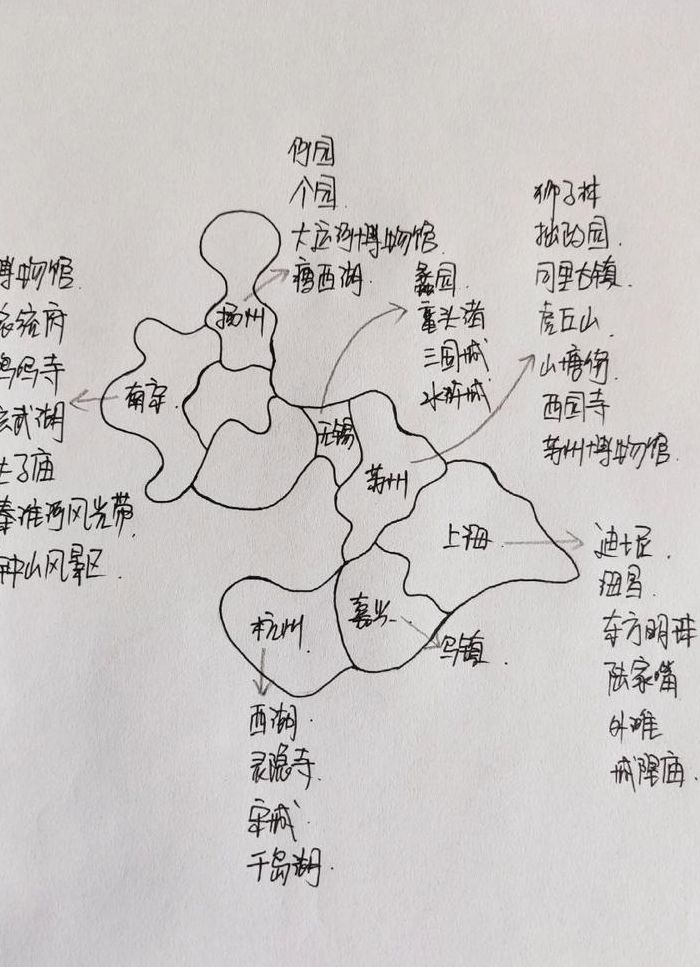 何园
个园
大运河博物馆
瘦西湖
扬州
蠡园
鼋头渚
三国城
水浒城
无锡
狮子林
拙政园
同里古镇
虎丘山
山塘街
西园寺
苏州博物馆
苏州
博物馆
总统府
鸡鸣寺
玄武湖
夫子庙
秦淮河风光带
钟山风景区
南京
上海
迪士尼
海昌
东方明珠
陆家嘴
外滩
城隍庙
嘉兴
乌镇
杭州
西湖
灵隐寺
宋城
千岛湖